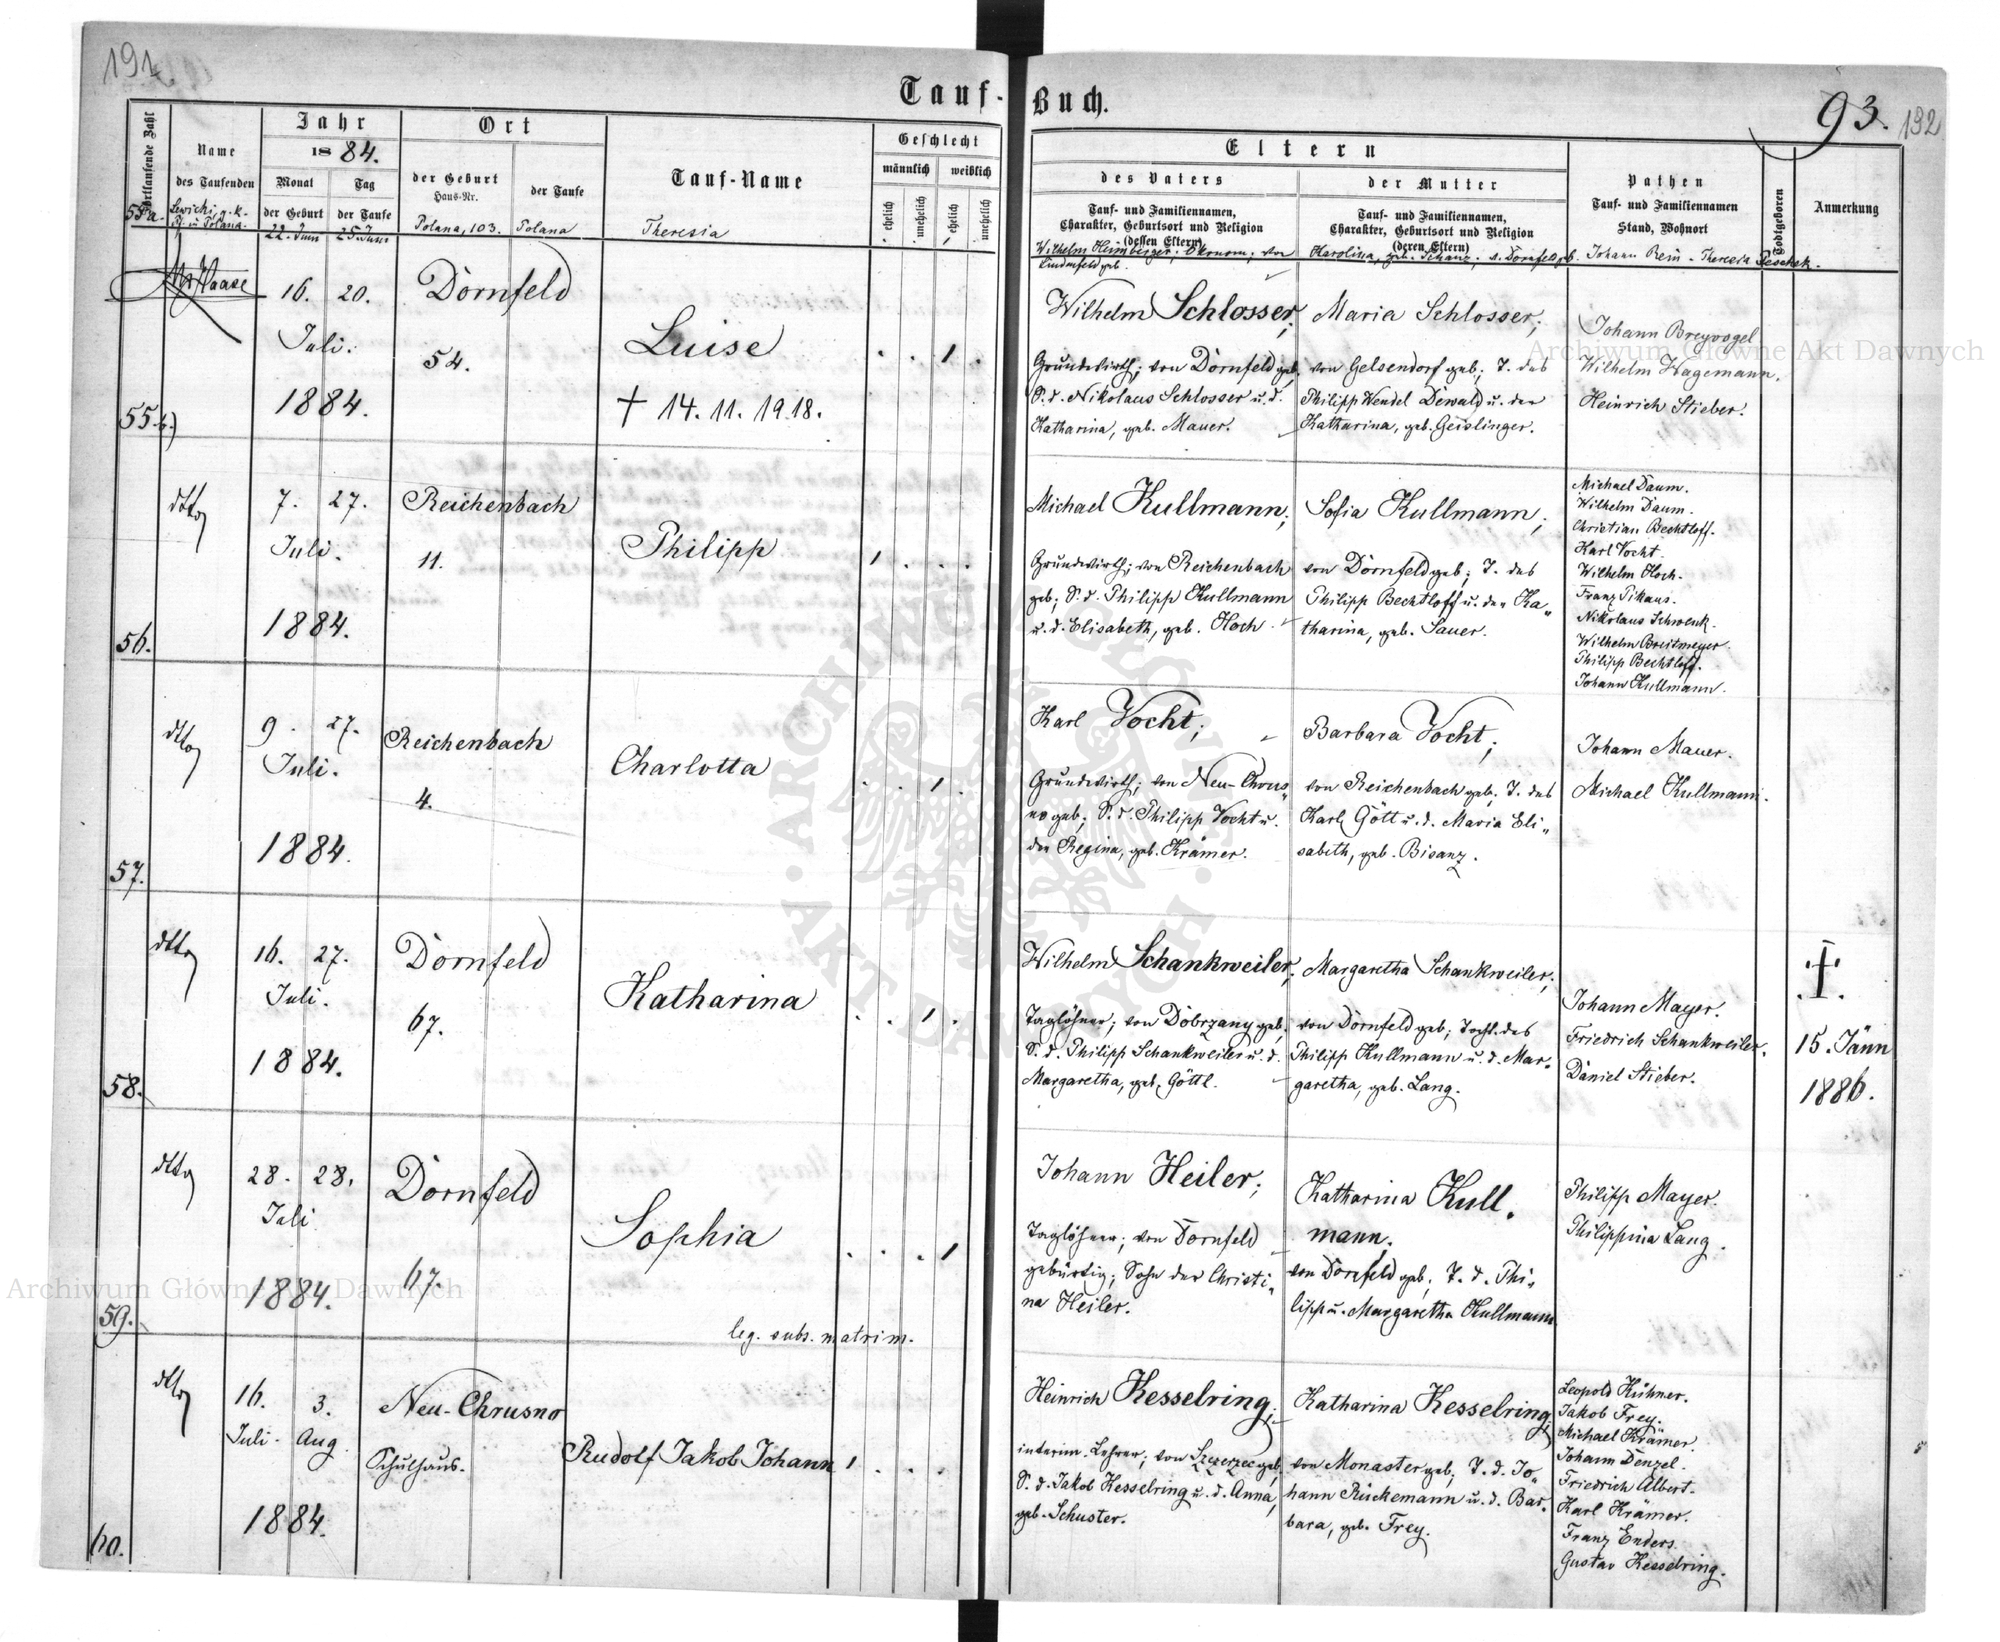 191.
Tauf-Buch.
93. 192
Fortlaufende Zahl
Name
des Taufenden
Jahr
1884.
Monat
der Geburt
Tag
der Taufe
Ort
der Geburt
Haus-Nr.
der Taufe
Tauf-Name
Geschlecht
männlich
weiblich
ehelich
unehelich
ehelich
unehelich
Eltern
des Vaters
Tauf- und Familiennamen,
Charakter, Geburtsort und Religion
(dessen Eltern)
der Mutter
Tauf- und Familiennamen,
Charakter, Geburtsort und Religion
(deren Eltern)
Pathen
Tauf- und Familiennamen
Stand, Wohnort
Todtgeboren
Anmerkung
55a.
Lewicki, g. k.
Pf. in Polana.
22. Juni
25. Juni
Polana, 103.
Polana
Theresia
Wilhelm Heimberger, Ökonom, von
Lindenfeld geb.
Karolina, geb. Schanz, v. Dornfeld geb.
Johann Rein - Theresia Peschek.
55b)
16. 20.
Juli.
1884.
Dornfeld
54.
Luise
† 14. 11. 1918.
. . 1 .
Wilhelm Schlosser,
Grundwirth; von Dornfeld geb,
S. d. Nikolaus Schlosser u. d.
Katharina, geb. Mauer.
Maria Schlosser;
von Gelsendorf geb; T. des
Philipp Wendel Dewald u. der
Katharina, geb. Geislinger.
Johann Breyvogel
Wilhelm Wagemann.
Heinrich Stieber.
56.
dtto
7. 27.
Juli.
1884.
Reichenbach
11.
Philipp
1 . . .
Michael Kullmann;
Grundwirth; von Reichenbach
geb; S. d. Philipp Kullmann
u. d. Elisabeth, geb. Hoch.
Sofia Kullmann;
von Dornfeld geb; T. des
Philipp Bechtloff u. der Ka„
tharina, geb. Sauer.
Michael Daum.
Wilhelm Daum.
Christian Bechtloff.
Karl Vocht.
Wilhelm Hoch.
Franz Pikaus.
Nikolaus Schwenk.
Wilhelm Breitmeyer.
Philipp Bechtloff.
Johann Kullmann.
57.
dtto
9. 27.
Juli.
1884.
Reichenbach
4.
Charlotta
. . 1 .
Karl Vocht;
Grundwirth; von Neu-Chrus„
no geb; S. d. Philipp Vocht u.
der Regina, geb. Krämer.
Barbara Vocht;
von Reichenbach geb; T. des
Karl Gött u. d. Maria Eli„
sabeth, geb. Bisanz.
Johann Mauer.
Michael Kullmann.
58.
dtto
16. 27.
Juli.
1884.
Dornfeld
67.
Katharina
. . 1 .
Wilhelm Schankweiler;
Taglöhner; von Dobrzany geb,
S. d. Philipp Schankweiler u. d.
Margaretha, geb. Göttl.
Margaretha Schankweiler;
von Dornfeld geb; Tocht. des
Philipp Kullmann u. d. Mar-
garetha, geb. Lang.
Johann Mayer.
Friedrich Schankweiler.
Daniel Stieber.
†
15. Jänn
1886.
59.
dtto
28. 28.
Juli
1884.
Dornfeld
67.
Sophia
leg. subs. matrim.
. . . 1
Johann Heiler;
Taglöhner; von Dornfeld
gebürtig; Sohn der Christi„
na Heiler.
Katharina Kull-
mann,
von Dornfeld geb, T. d. Phi-
lipp u. Margaretha Kullmann
Philipp Mayer.
Philippina Lang.
60.
dtto
16. 3.
Juli. Aug
1884.
Neu-Chrusno
Schulhaus.
Rudolf Jakob Johann
1 . . .
Heinrich Kesselring;
interim. Lehrer; von Szczerzec geb,
S. d. Jakob Kesselring u. d. Anna,
geb. Schuster.
Katharina Kesselring;
von Monaster geb; T. d. Jo-
hann Rückemann u. d. Bar-
bara, geb. Frey.
Leopold Kühner.
Jakob Frey.
Michael Krämer.
Johann Denzel.
Friedrich Albert.
Karl Krämer.
Franz Enders.
Gustav Kesselring.
Archiwum Główne Akt Dawnych
Archiwum Główne Akt Dawnych
ARCHIWUM GŁÓWNE AKT DAWNYCH